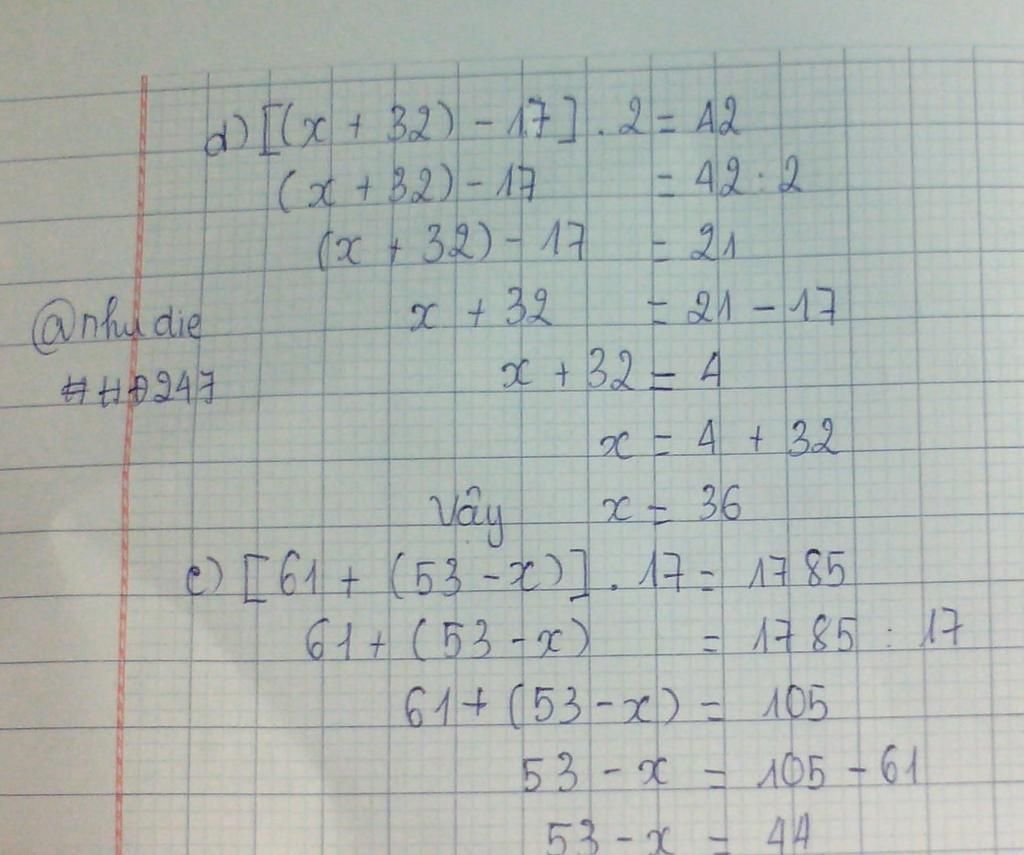 d) [(x + 32) - 17] . 2 = 42
(x + 32) - 17 = 42 : 2
(x + 32) - 17 = 21
x + 32 = 21 - 17
@nhu die
x + 32 = 4
x = 4 + 32
Vậy x = 36
e) [61 + (53 - x)] . 17 = 1785
61 + (53 - x) = 1785 : 17
61 + (53 - x) = 105
53 - x = 105 - 61
53 - x = 44